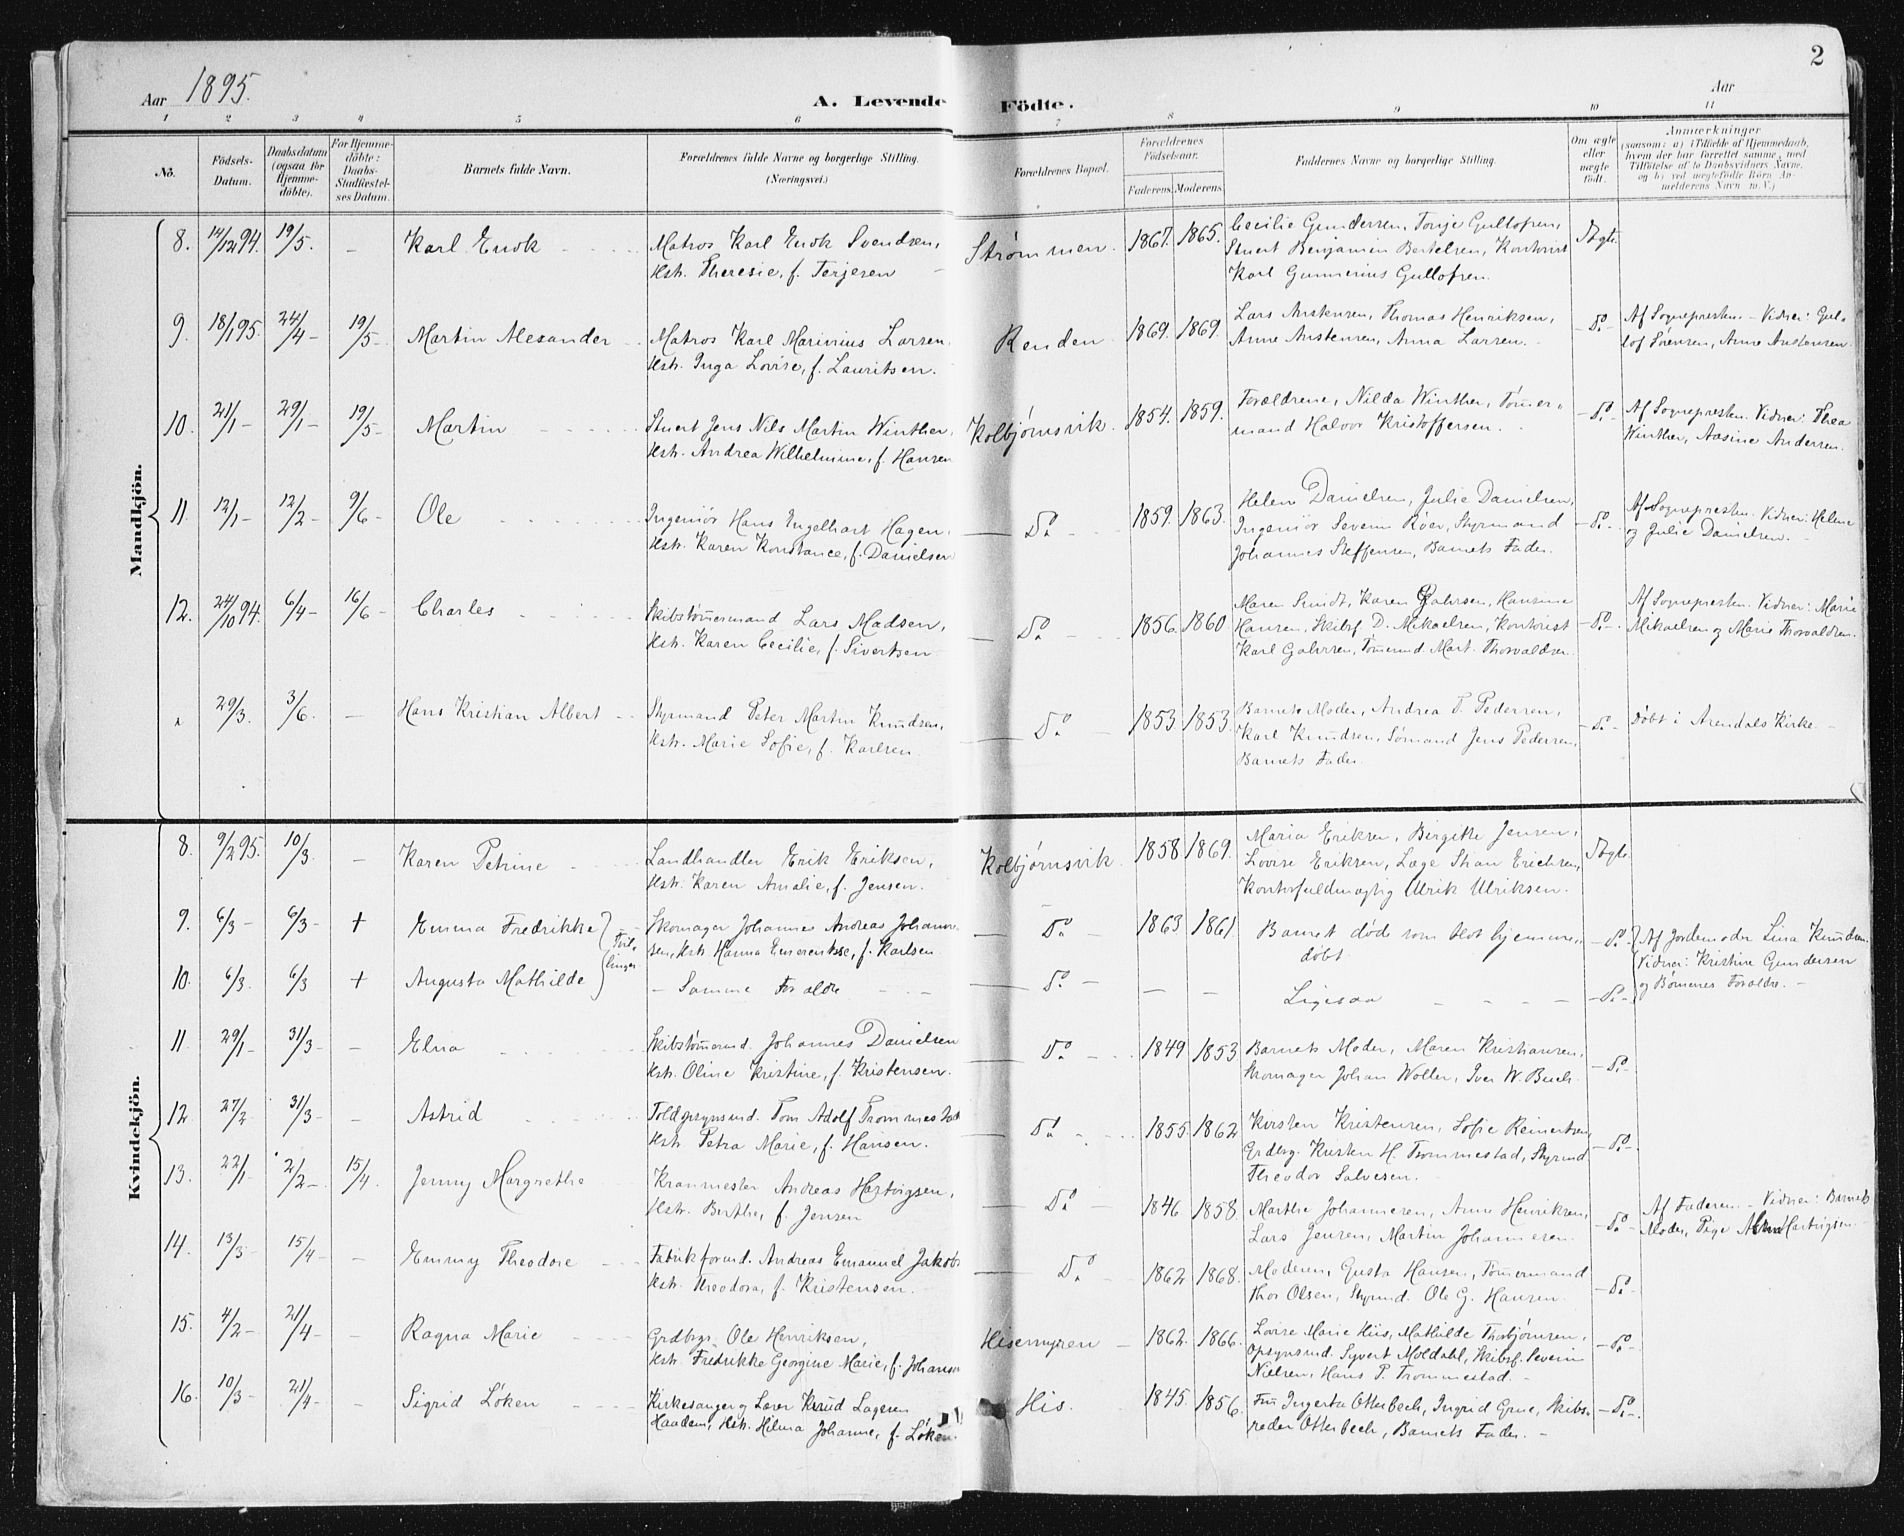 2
Aar 1895.
A. Levende Födte.
Aar
1 2 3 4 5 6 7 8 9 10 11
Nö.
Födsels-Datum.
Daabsdatum (ogsaa for Hjemmedöbte).
For Hjemmedöbte: Daabs-Stadfæstelses Datum.
Barnets fulde Navn.
Forældrenes fulde Navne og borgerlige Stilling. (Næringsvei.)
Forældrenes Bopæl.
Forældrenes Födselsaar.
Faderens. Moderens.
Faddernes Navne og borgerlige Stilling.
Om ægte eller uægte födt.
Anmærkninger
(saasom: a) i Tilfælde af Hjemmedaab, hvem der har forrettet samme, med Tilföielse af to Daabsvidners Navne, og b) ved uægtefödte Börn Anmelderens Navn m. V.)
Mandkjön.
8. 14/12 94. 19/5. – Karl Enok
Matros Karl Enok Svendsen,
Hstr. Theresie, f. Terjesen
Strømmen. 1867. 1865.
Cecilie Gundersen, Tonje Gullofsen,
Stuert Benjamin Bertelsen, Kontorist
Karl Gunnerius Gullofsen.
Ægte.
9. 18/1 95. 24/4 – 19/5 – Martin Alexander
Matros Karl Marinius Larsen,
Hstr. Inga Lovise, f. Lauritsen.
Renden 1869. 1869.
Lars Anstensen, Thomas Henriksen,
Anne Anstensen, Anna Larsen. –
– Do –
Af Sognepresten. – Vidner: Gul-
lof Sørensen, Anne Anstensen.
10. 21/1 – 29/1 – 19/5 – Martin
Stuert Jens Nils Martin Winther,
Hstr. Andrea Wilhelmine, f. Hansen
Kolbjørnsvik. 1854. 1859.
Forældrene, Nilda Winther, Tømer-
mand Halvor Kristoffersen.
– Do –
Af Sognepresten. Vidner: Thea
Winther, Aasine Andersen.
11. 12/1 – 12/2 – 9/6 – Ole
Ingeniör Hans Engelhart Hagen,
Hstr. Karen Konstance, f. Danielsen
Do 1859. 1863.
Helene Danielsen, Julie Danielsen,
Ingeniör Severin Röer, Styrmand
Johannes Steffensen, Barnets Fader.
– Do –
Af Sognepresten. Vidner: Helene
og Julie Danielsen. –
12. 24/10 94. 6/4 – 16/6 – Charles
Skibstömermand Lars Madsen,
Hstr. Karen Cecilie, f. Sivertsen
Do 1856. 1860.
Maren Smidt, Karen Gahrsen, Hansine
Hansen, Skibsf. D. Mikaelsen, Kontorist
Karl Gahrsen, Tömermd Mart. Thorvaldsen.
– Do –
Af Sognepresten. Vidner: Marie
Mikaelsen og Marie Thorvaldsen.
29/3. 3/6. – Hans Kristian Albert
Styrmand Peter Martin Knudsen,
Hstr. Marie Sofie, f. Karlsen.
Do 1853 1853.
Barnets Moder, Andrea T. Pedersen,
Karl Knudsen, Sömand Jens Pedersen,
Barnets Fader.
– Do –
Döbt i Arendals Kirke. –
Kvindekjön.
8. 9/2 95. 10/3. – Karen Petrine
Landhandler Erik Eriksen,
Hstr. Karen Amalie, f. Jensen.
Kolbjørnsvik. 1858 1869.
Maria Eriksen, Birgitte Jensen,
Lovise Eriksen, Læge Stian Erichsen,
Kontorfuldmægtig Ulrik Ulriksen.
Ægte.
9. 6/3 – 6/3 – + Emma Fredrikke
Tvil-
linger
Skomager Johannes Andreas Johann-
sen, Hstr. Hanna Emerentse, f. Karlsen.
Do 1863 1861.
Barnet döde som blot hjemme-
döbt.
– Do –
Af Jordemoder Lina Knudsen.
Vidner: Kristine Gundersen
og Börnenes Forældre. –
10. 6/3 6/3 + Augusta Mathilde
– Samme Forældre –
Do – –
Ligesaa – – – –
– Do –
11 29/1 – 31/3 – – Elna
Skibstömermd. Johannes Danielsen
Hstr. Oline Kristine, f. Kristensen.
Do 1849 1853
Barnets Moder, Maren Kristiansen,
Skomager Johan Woller, Iver W. Buch.
– Do –
12 27/2 – 31/3 – – Astrid
Toldopsynsmd. Tom Adolf Trommestad
Hstr. Petra Marie, f. Hansen.
Do 1855. 1862
Kirsten Kristensen, Sofie Reinertsen,
Grdbrg. Kristen H. Trommestad, Styrmd
Theodor Salvesen.
– Do –
13. 22/1 – 2/2 – 15/4. Jenny Margrethe
Kranmester Andreas Hartvigsen,
Hstr. Berthe, f. Jensen
Do 1846 1858.
Marthe Johannesen, Anne Henriksen,
Lars Jensen, Martin Johannesen.
– Do –
Af Faderen. – Vidner: Barnets
Moder, Pige Anna Hartvigsen. –
14. 13/3 – 15/4 – – Emmy Theodore
Fabrikformd. Andreas Emanuel Jakobs
Hstr. Theodora, f. Kristensen.
Do 1862 1868.
Moderen, Gusta Hansen, Tömermand
Thor Olsen, Styrmd. Ole G. Hansen.
– Do –
15. 4/2 – 21/4 – – Ragna Marie
Grdbrgr. Ole Henriksen,
Hstr. Fredrikke Georgine Marie, f. Johansen
Hisemyren 1862. 1866.
Lovise Marie Hiis, Mathilde Thorbjörnsen,
Opsynsmd. Syvert Moldahl, Skibsf. Severin
Nielsen, Hans P. Trommestad. –
– Do –
16. 10/3 – 21/4 – – Sigrid Löken
Kirkesanger og Lærer Knud Lagesen
Haadem, Hstr. Hilma Johanne, f. Löken.
His. 1845. 1856.
Fru Ingerta Otterbech, Ingrid Grue, Skibs-
reder Otterbech, Barnets Fader. –
– Do –